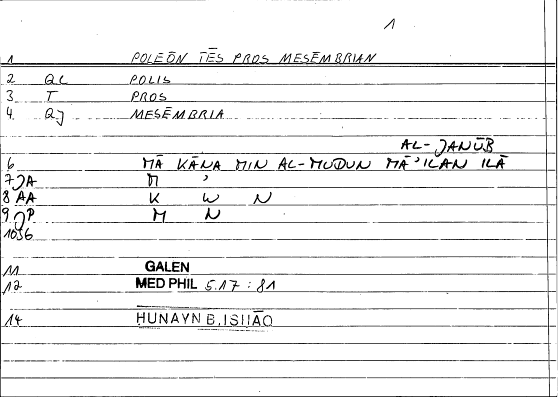 1
1 POLEŌN TĒS PROS MESĒMBRIAN
2 QC POLIS
3 T PROS
4 QJ MESĒMBRIA
AL-JANŪB
6 MĀ KĀNA MIN AL-MUDUN MĀ'ILAN ILĀ
7 JA M '
8 AA K W N
9 JP M N
10
11 GALEN
12 MED PHIL 5.17 : 81
14 HUNAYN B.ISḤĀQ